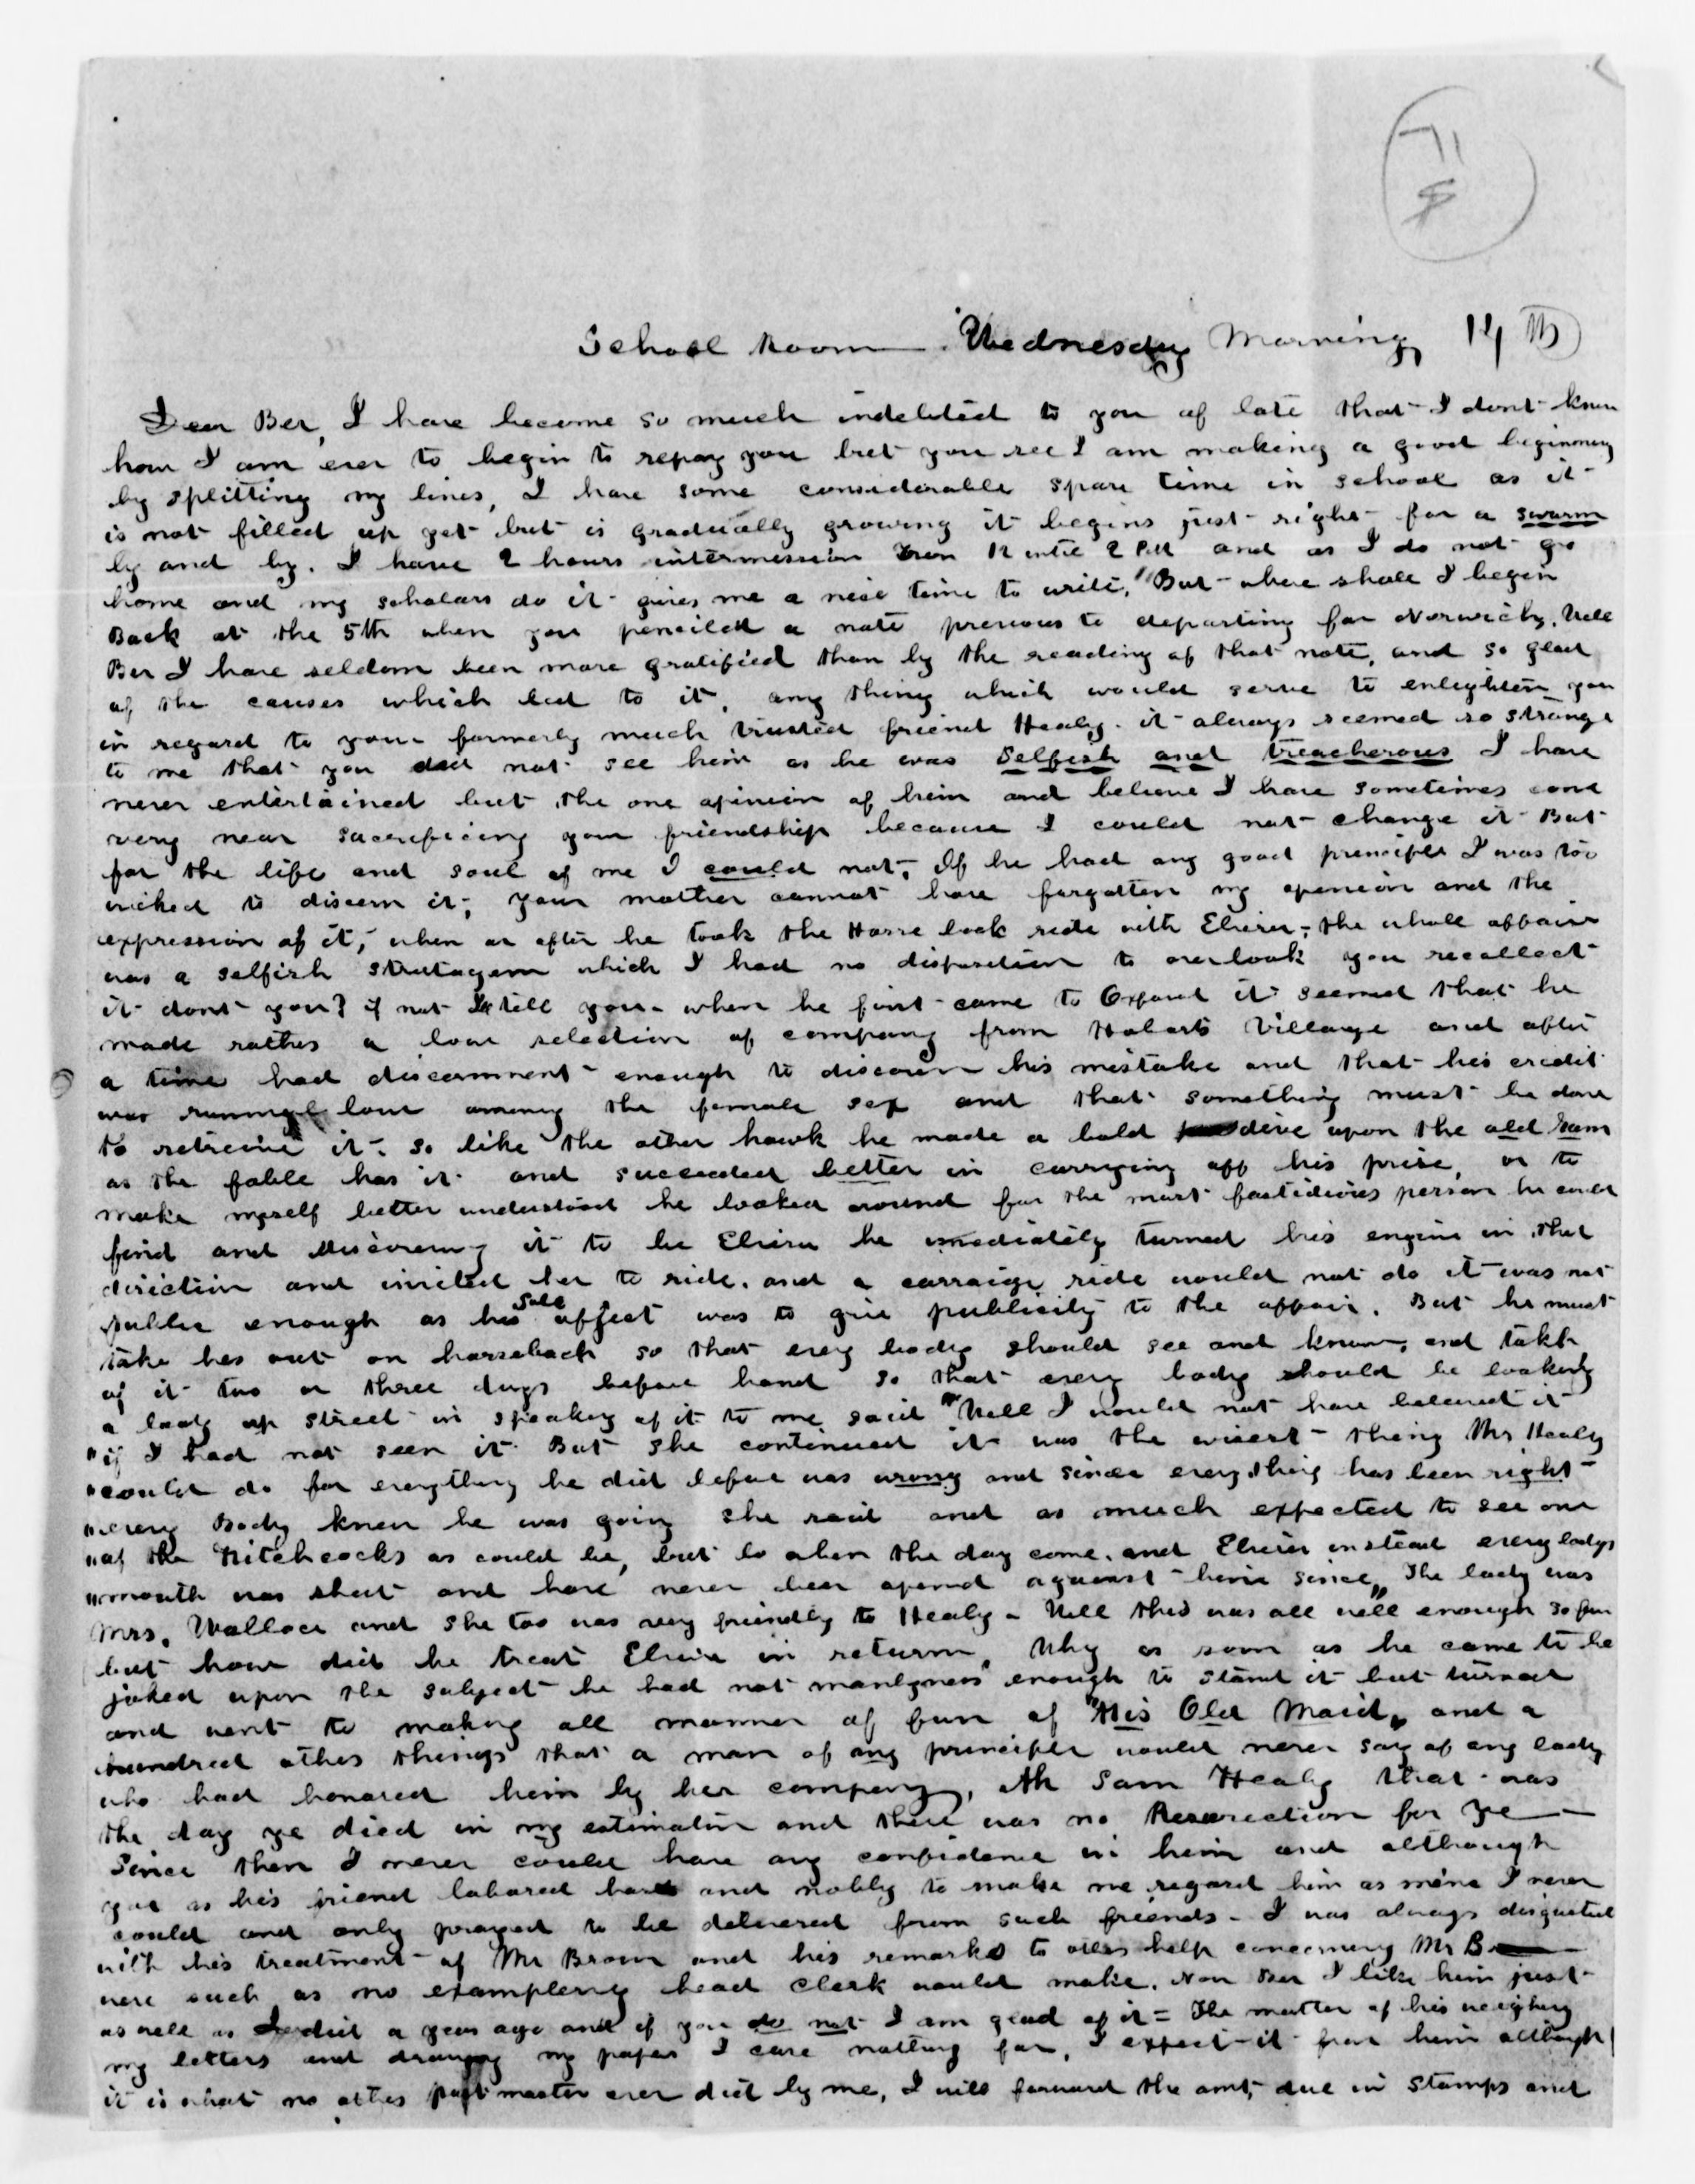 School Room Wednesday Morning 14th
Dear Ber, I have become so much indebted to you of late that I dont know
how I am ever to begin to repay you but you see I am making a good beginning
by splitting my lines, I have some considerable spare time in school as it
is not filled up yet but is gradually growing it begins just right for a swarm
by and by. I have 2 hours intermission from 12 until 2 P.M and as I do not go
home and my scholars do it gives me a nice time to write, "But where shall I begin
Back at the 5th when you penciled a note previous to departing for Norwich, Well
Ber I have seldom been more gratified than by the reading of that note, and so glad
of the causes which led to it, any thing which would serve to enlighten you
in regard to your formerly much trusted friend Healy. it always seemed so strange
to me that you did not see him as he was Selfish and treacherous I have
never entertained but the one opinion of him and believe I have sometimes come
very near sacrificing your friendship because I could not change it But
for the life and soul of me I could not, If he had any good principle I was too
wicked to discern it, your mother cannot have forgotten my opinion and the
expression of it, when or after he took the Horse back ride with Elvira, the whole affair
was a selfish stratagem which I had no disposition to overlook you recollect
it dont you? if not I tell you. when he first came to Oxford it seemed that he
made rather a low selection of company from Hobarts Villange and after
a time had discernment enough to discover his mistake and that his credit
was running low among the female sex and that something must be done
to retrieve it. so like the other hawk he made a bold dive upon the old Ram
as the fable has it and succeeded better in carrying off his prise, or to
make myself better understood he looked around for the most fastidious person he could
find and discovering it to be Elvira he imediately turned his engine in that
diriction and invited her to ride. and a carraige ride would not do it was not
public enough as his sole affect was to give publicity to the affair. But he must
take her out on horseback so that every body should see and know, and talk
of it two or three days before hand so that every body should be looking
a lady up street in speaking of it to me said "Well I would not have beleived it
"if I had not seen it. But she continued it was the wisest thing Mr Healy
"could do for everything he did before was wrong and since everything has been right
"every Body knew he was going she said and as much expected to see one
"of the Hitchcocks as could be, but lo when the day come. and Elvira instead every bodys
"mouth was shut and have never been opend against him since" The lady was
Mrs. Wallace and she too was very friendly to Healy - Well this was all well enough so far
but how did he treat Elvira in return, Why as soon as he came to be
joked upon the subject he had not manlyness enough to stand it but turned
and went to making all manner of fun of "His Old Maid" and a
hundred other things that a man of any principle would never say of any lady
who had honored him by her company, Ah Sam Healy that was
the day ye died in my estimation and there was no Resurection for ye
Since then I never could have any confidence in him and although
you as his friend labored hard and nobly to make me regard him as mine I never
could and only prayed to be delivered from such friends - I was always disgusted
with his treatment of Mr Brown and his remarks to other help concerning Mr B
were such as no exampleny head clerk would make. Now Ber I like him just
as well as I did a year ago and if you do not I am glad of it = The matter of his weighing
my letters and my paper I care nothing for, I expect it from him although
it is what no other post master ever did by me, I will forward the amt, due in stamps and